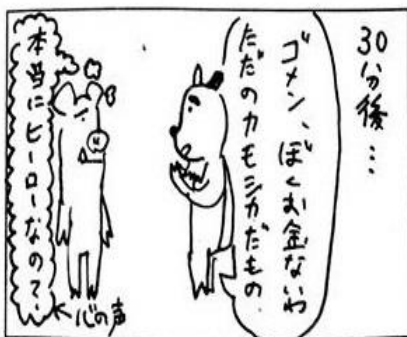 30分後…
ゴメン、ぼくお金ないわ
ただのカモシカだもの.
本当にヒーローなの?.
心の声